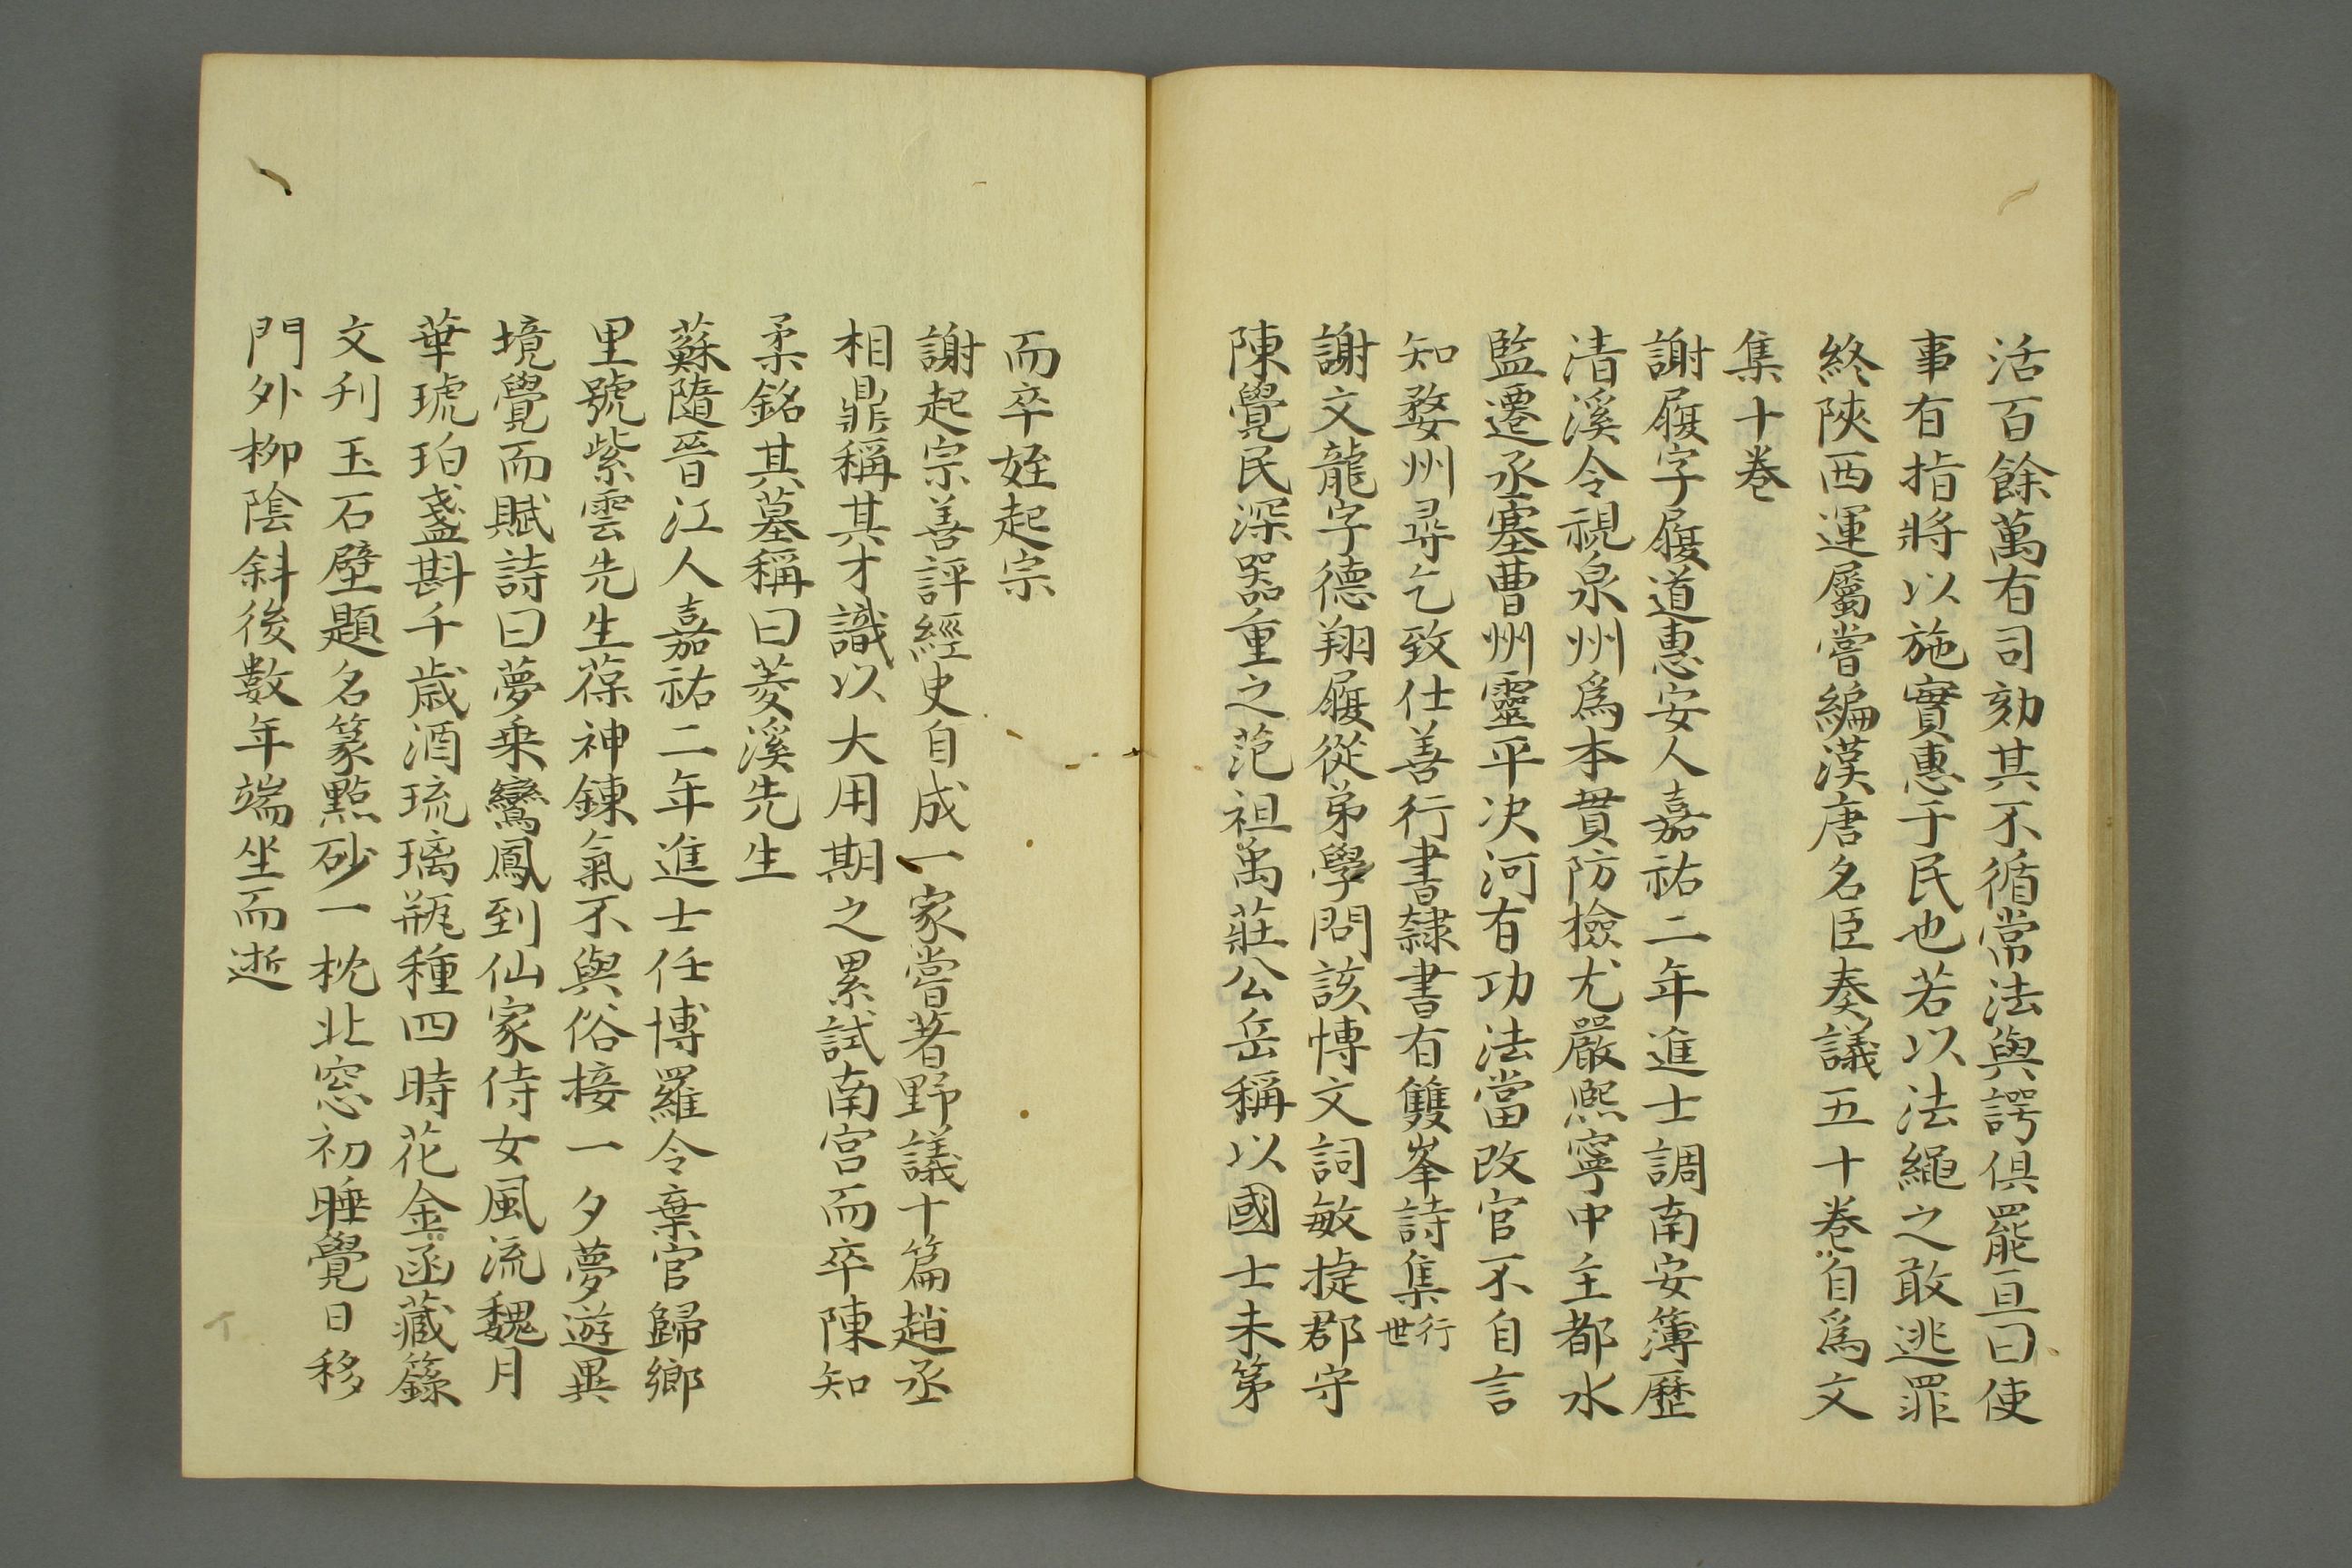 活百餘萬有司劾其不循常法與諤俱罷亘曰使
事有指將以施實惠于民也若以法繩之敢逃罪
終陝西運屬嘗編漢唐名臣奏議五十卷自爲文
集十卷
謝履字履道惠安人嘉祐二年進士調南安簿歷
清溪令視泉州爲本貫防檢尤嚴熙寧中主都水
監遷丞塞曹州靈平决河有功法當改官不自言
知婺州尋乞致仕善行書隸書有雙峯詩集行世
謝文龍字德翔履從弟學問該博文詞敏捷郡守
陳覺民深器重之范祖禹莊公岳稱以國士未第
而卒姪起宗
謝起宗善評經史自成一家嘗著野議十篇趙丞
相鼎稱其才識以大用期之累試南宮而卒陳知
柔銘其墓稱曰菱溪先生
蘇隨晉江人嘉祐二年進士任博羅令棄官歸鄉
里號紫雲先生葆神鍊氣不與俗接一夕夢遊異
境覺而賦詩曰夢乘鸞鳳到仙家侍女風流魏月
華琥珀盞斟千歲酒琉璃瓶種四時花金函藏籙
文刋玉石壁題名篆點砂一枕北窓初睡覺日移
門外柳陰斜後數年端坐而逝